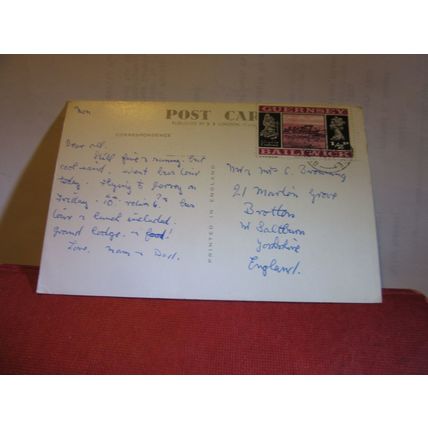 Mon
POST CAR
CORRESPONDENCE
Dear all.
Still fine & sunny but
cool wind. went bus tour
today. Flying to Jersey on
Friday. 10
bus
tour & lunch included.
grand lodge. & food!
Love. Mam & Dad.
PRINTED IN ENGLAND
GUERNSEY
BAILIWICK
Mr & Mrs C. Browning
21 Marlin Grove
Brotton
Nr Saltburn
Yorkshire
England.